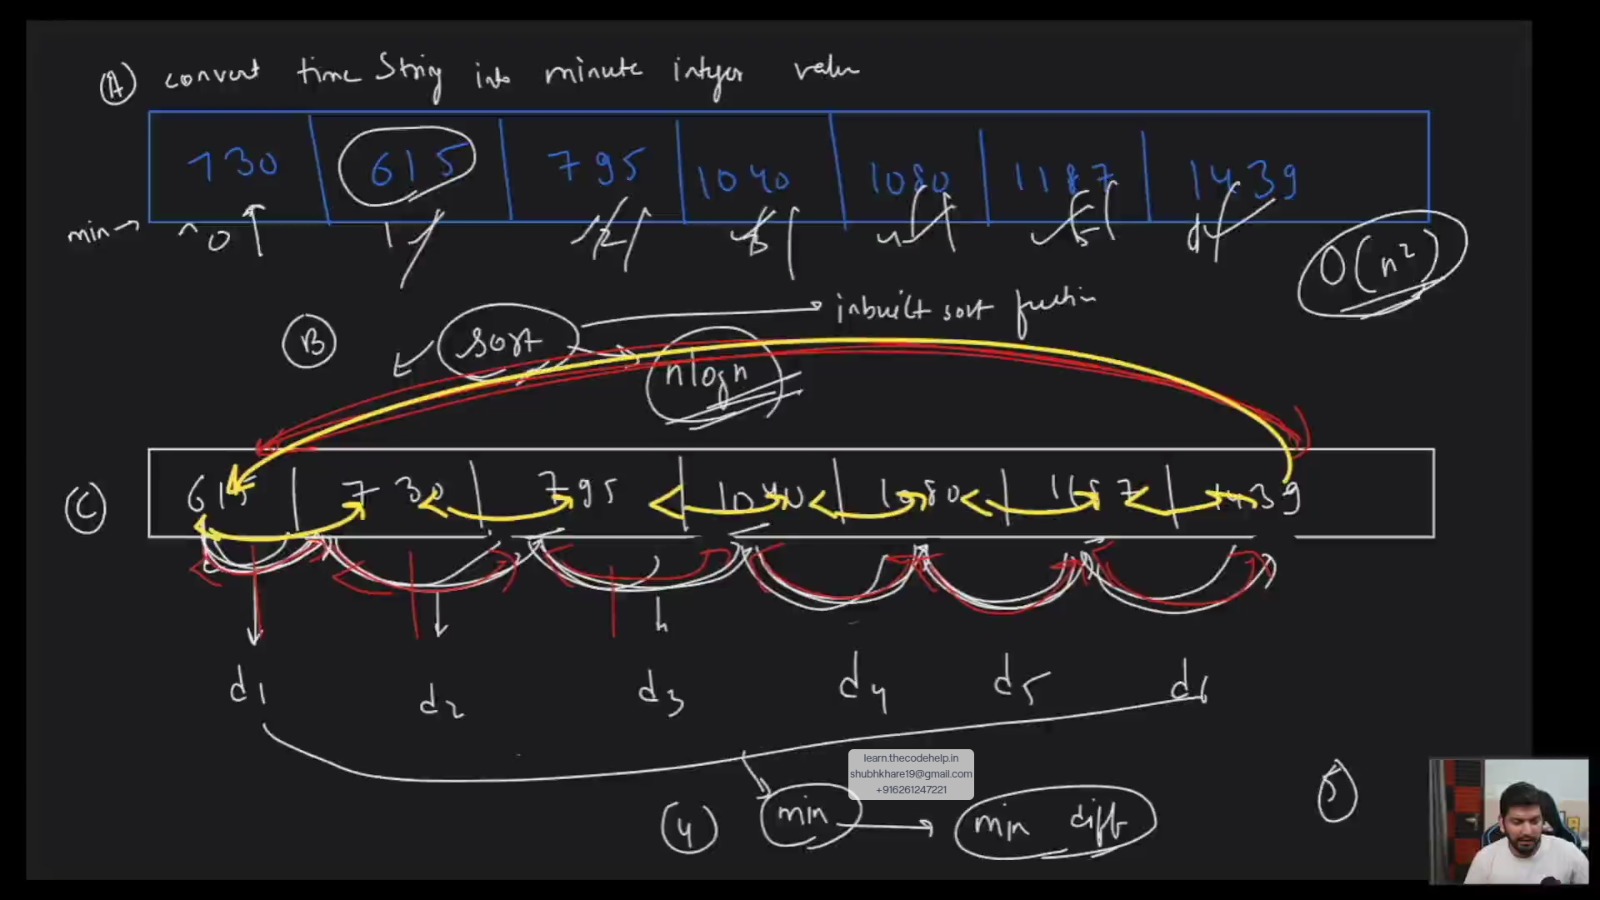 (A) convert time String into minute integer value
730 615 795 1040 1080 1187 1439
min → 0 1 2 3 4 5
O(n²)
(B) sort → inbuilt sort function
nlogn
(C) 615 730 795 1040 1080 1187 1439
d1 d2 d3 d4 d5 d6
learn.thecodehelp.in
shubhkhare19@gmail.com
+916261247221
(4) min → min diff
5